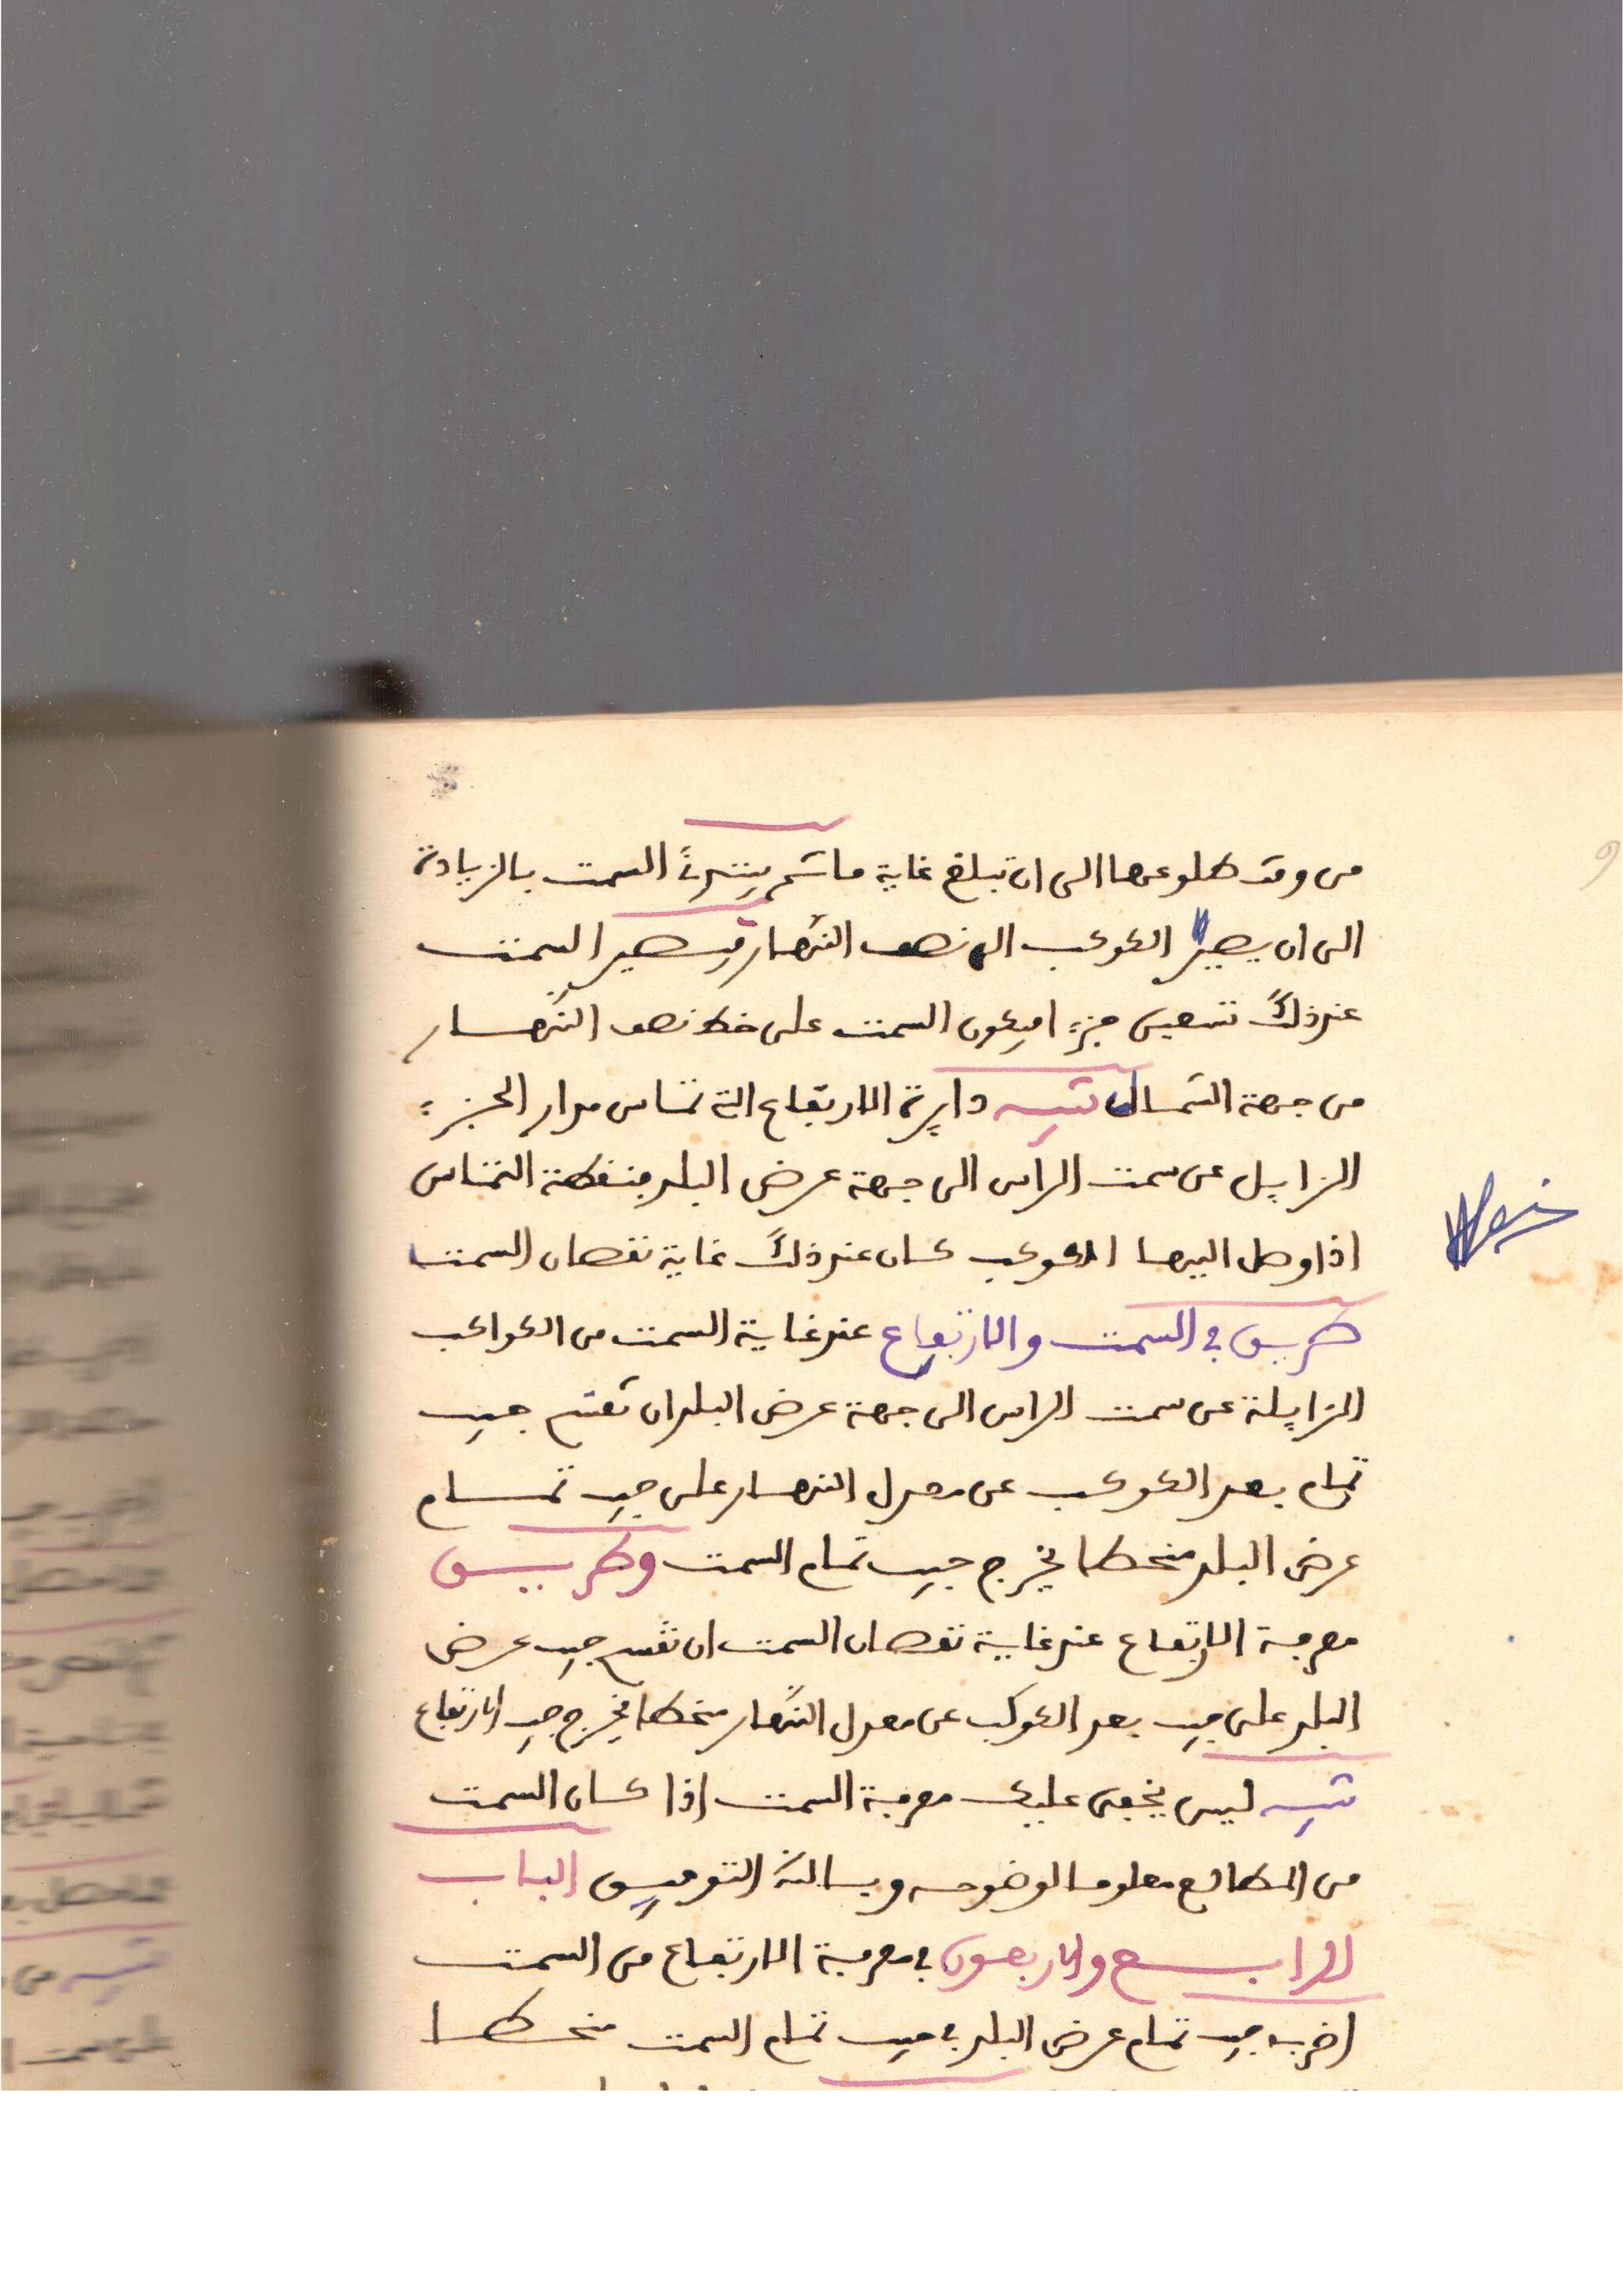 من وقت طلوعها الى ان تبلغ غاية ما ثم يبتدئ السمت بالزيادة
الى ان يصير الكوكب الى نصف النهار فيصير السمت
عند ذلك تسعين جزءا فيكون السمت على خط نصف النهار
من جهة الشمال تنبيه دايرة الارتفاع التي تماس مدار الجزء
الزايل عن سمت الراس الى جهة عرض البلد فنقطة التماس
اذا وصل اليها الكوكب كان عند ذلك غاية نقصان السمت
طريق في السمت والارتفاع عند غاية السمت من الكواكب
الزايلة عن سمت الراس الى جهة عرض البلد ان تقسم جيب
تمام بعد الكوكب عن معدل النهار على جيب تمام
عرض البلد منحطا يخرج جيب تمام السمت وطريق
معرفة الارتفاع عند غاية نقصان السمت ان تقسم جيب عرض
البلد على جيب بعد الكوكب عن معدل النهار منحطا يخرج جيب الارتفاع
تنبيه ليس يخفى عليك معرفة السمت اذا كان السمت
من المطالع معلوما لوضوحه وبالله التوفيق الباب
الرابع والاربعون في معرفة الارتفاع من السمت
اضرب جيب تمام عرض البلد في جيب تمام السمت منحطا